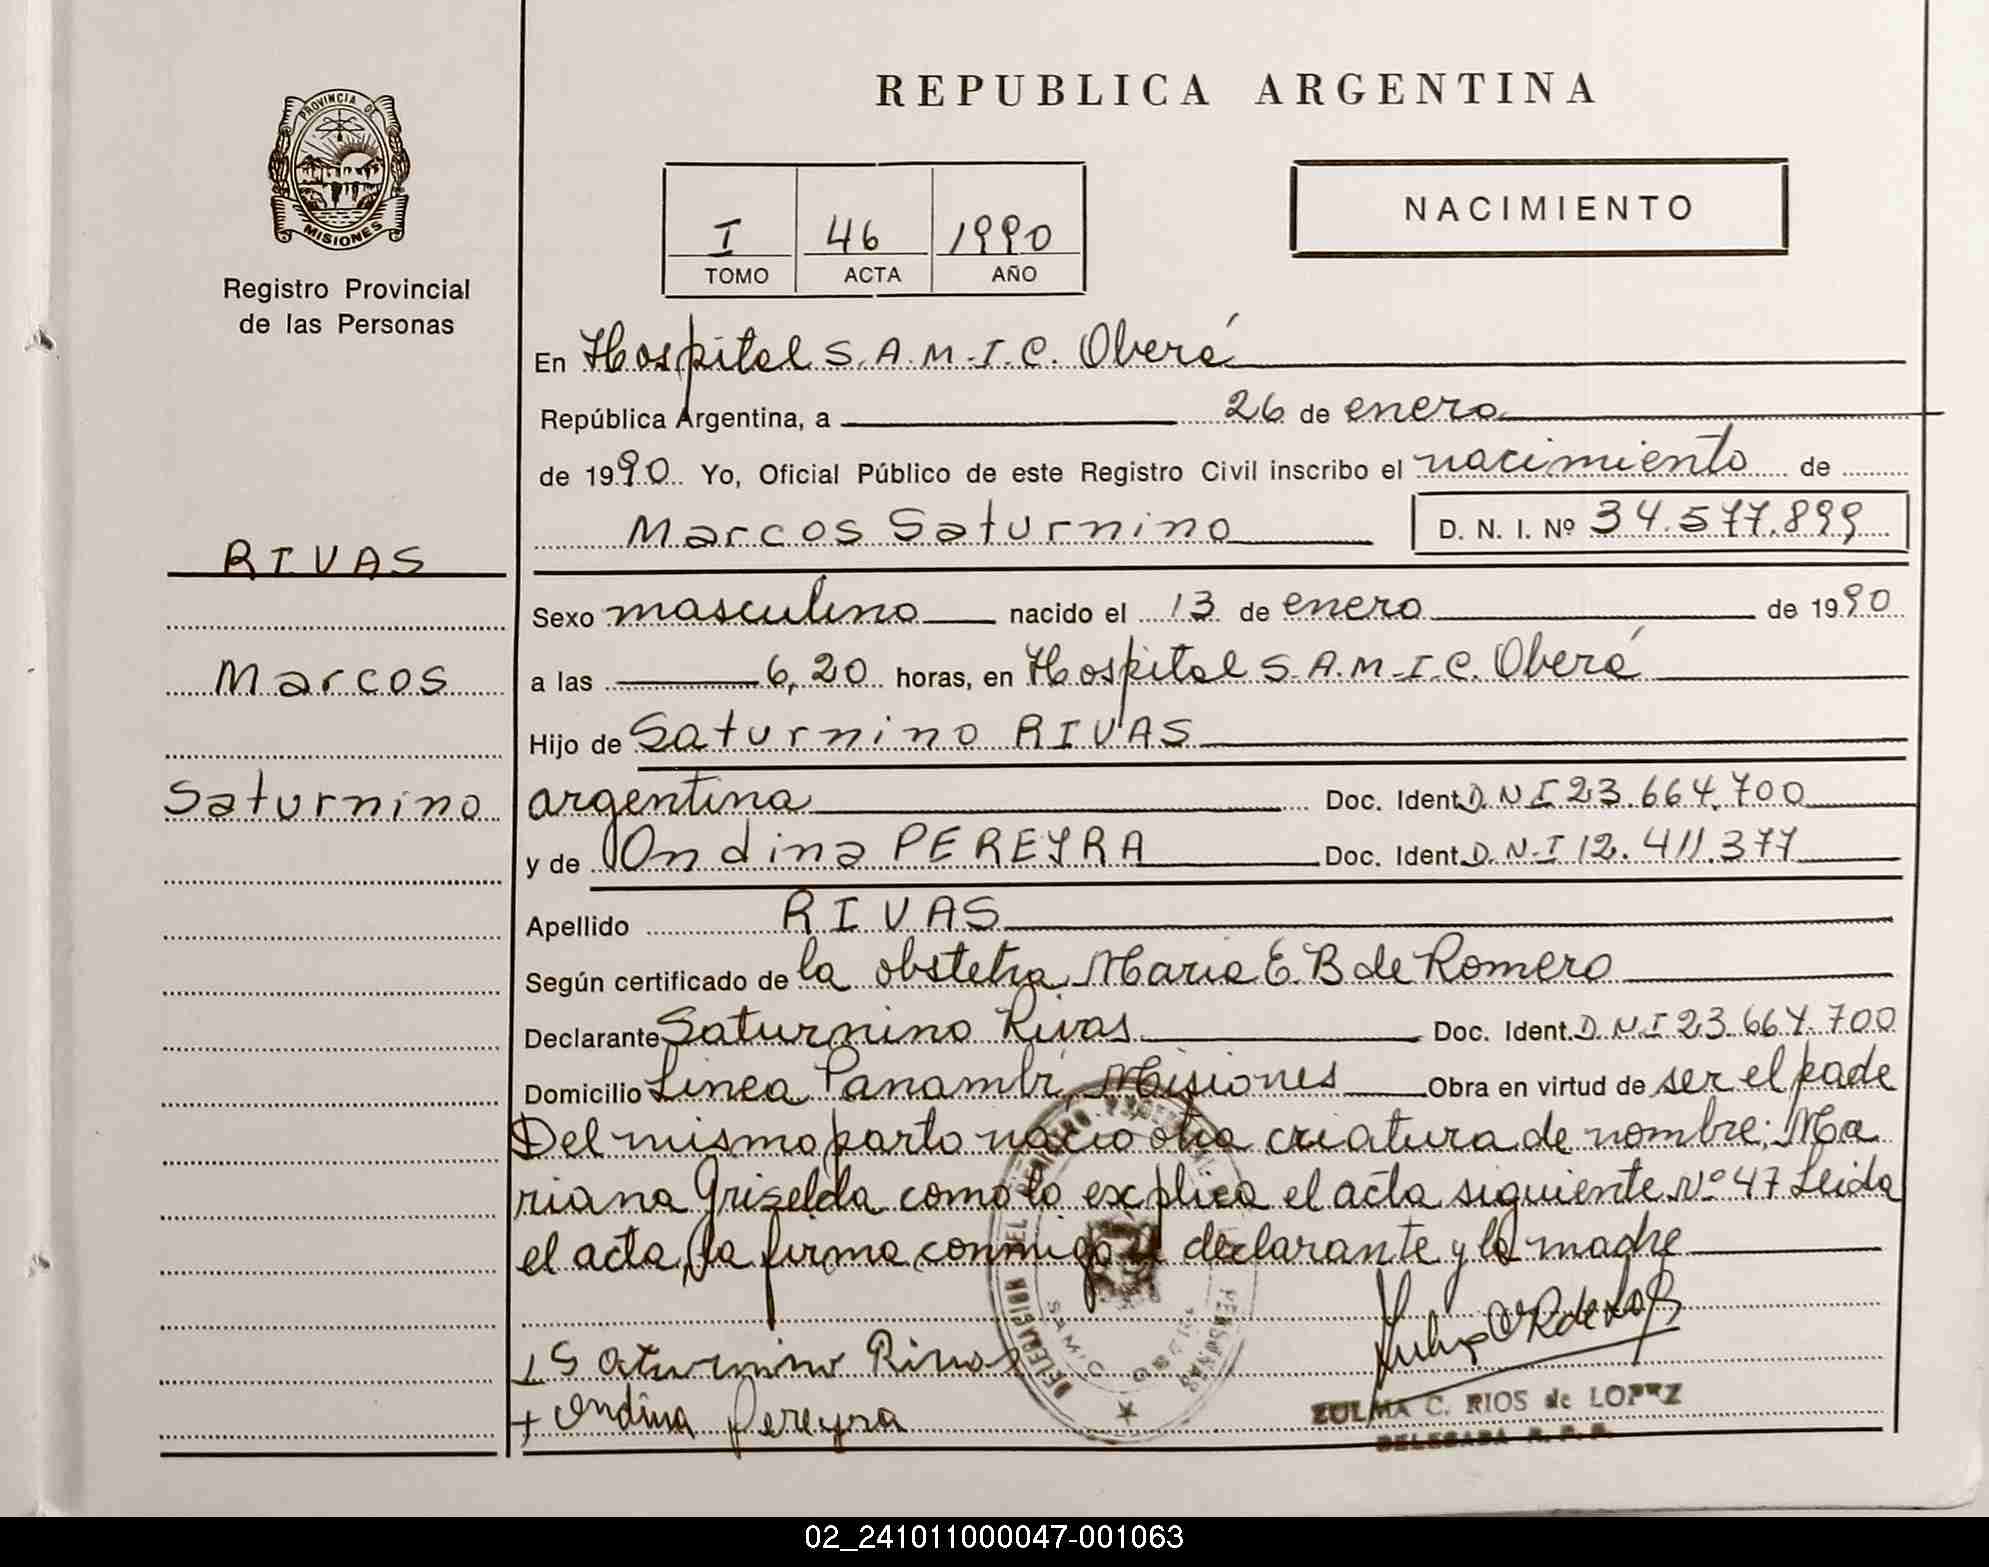 PROVINCIA DE
MISIONES
Registro Provincial
de las Personas
RIVAS
Marcos
Saturnino
REPUBLICA ARGENTINA
I 46 1990
TOMO ACTA AÑO
NACIMIENTO
En Hospital S.A.M.I.C. Oberá
República Argentina, a 26 de enero
de 1990 Yo, Oficial Público de este Registro Civil inscribo el nacimiento de
Marcos Saturnino D. N. I. Nº 34.577.899
Sexo masculino nacido el 13 de enero de 1990
a las 6,20 horas, en Hospital S.A.M.I.C. Oberá
Hijo de Saturnino RIVAS
argentina Doc. Ident. D.N.I 23.664.700
y de Ondina PEREYRA Doc. Ident. D.N.I 12.411.377
Apellido RIVAS
Según certificado de la obstetra Maria E. B de Romero
Declarante Saturnino Rivas Doc. Ident. D.N.I 23.664.700
Domicilio Linea Panambí, Misiones Obra en virtud de ser el padre
Del mismo parto nacio otra criatura de nombre: Ma
riana Griselda como lo explica el acta siguiente Nº 47 Leida
el acta, la firma conmigo el declarante y la madre
Saturnino Rivas
Ondina Pereyra
ZULMA C. RIOS de LOPEZ
DELEGADA R. P. P.
DELEGACION DEL REGISTRO PROVINCIAL PERSONAS
SAMIC
02_241011000047-001063